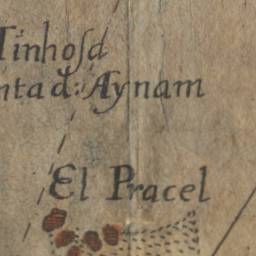 Tinhosa
ntad: Aynam
El Pracel